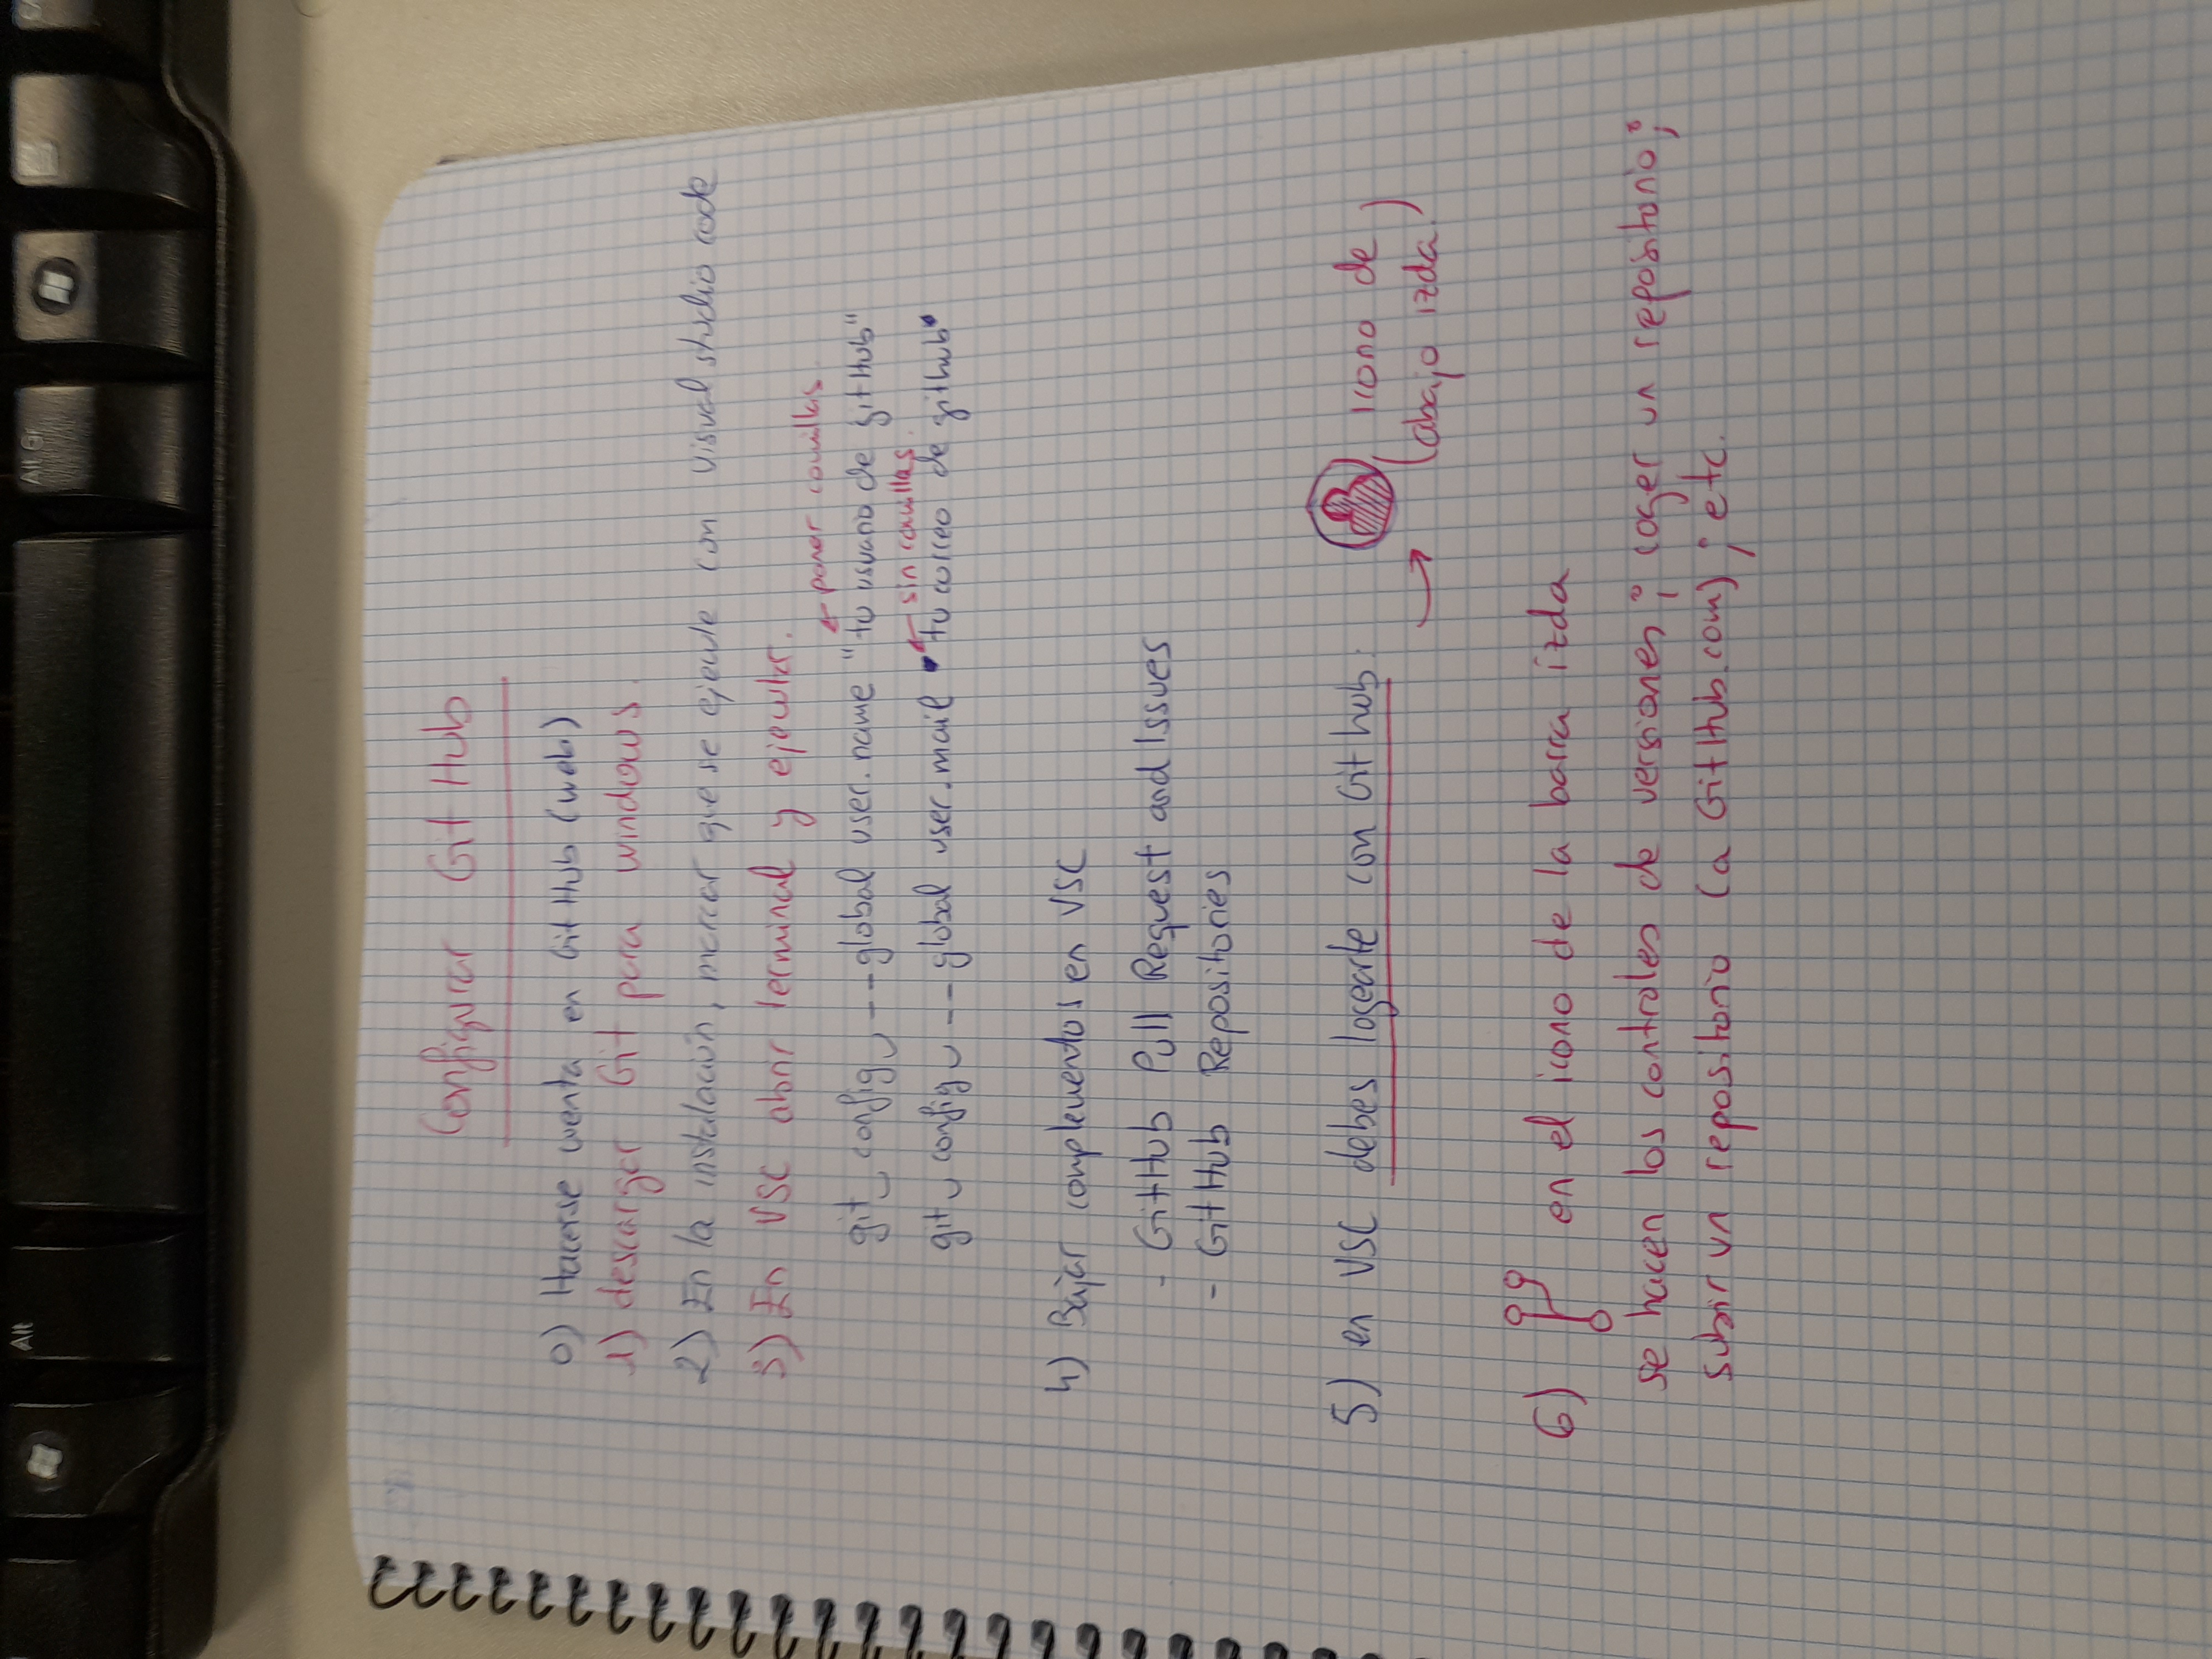 Alt
Alt Gr
Configurar GitHub
0) Hacerse cuenta en GitHub (web)
1) descargar Git para windows
2) En la instalación, marcar que se ejecute con visual studio code
3) En VSC abrir terminal y ejecutar.
← poner comillas
git config --global user.name "tu usuario de gitHub"
← sin comillas.
git config --global user.mail tu correo de github
4) Bajar complementos en VSC
- GitHub Pull Request and Issues
- GitHub Repositories
5) en VSC debes logearte con Github.
→ (icono de
abajo izda.)
6) en el icono de la barra izda
se hacen los controles de versiones; coger un repositorio;
subir un repositorio (a GitHub.com); etc.